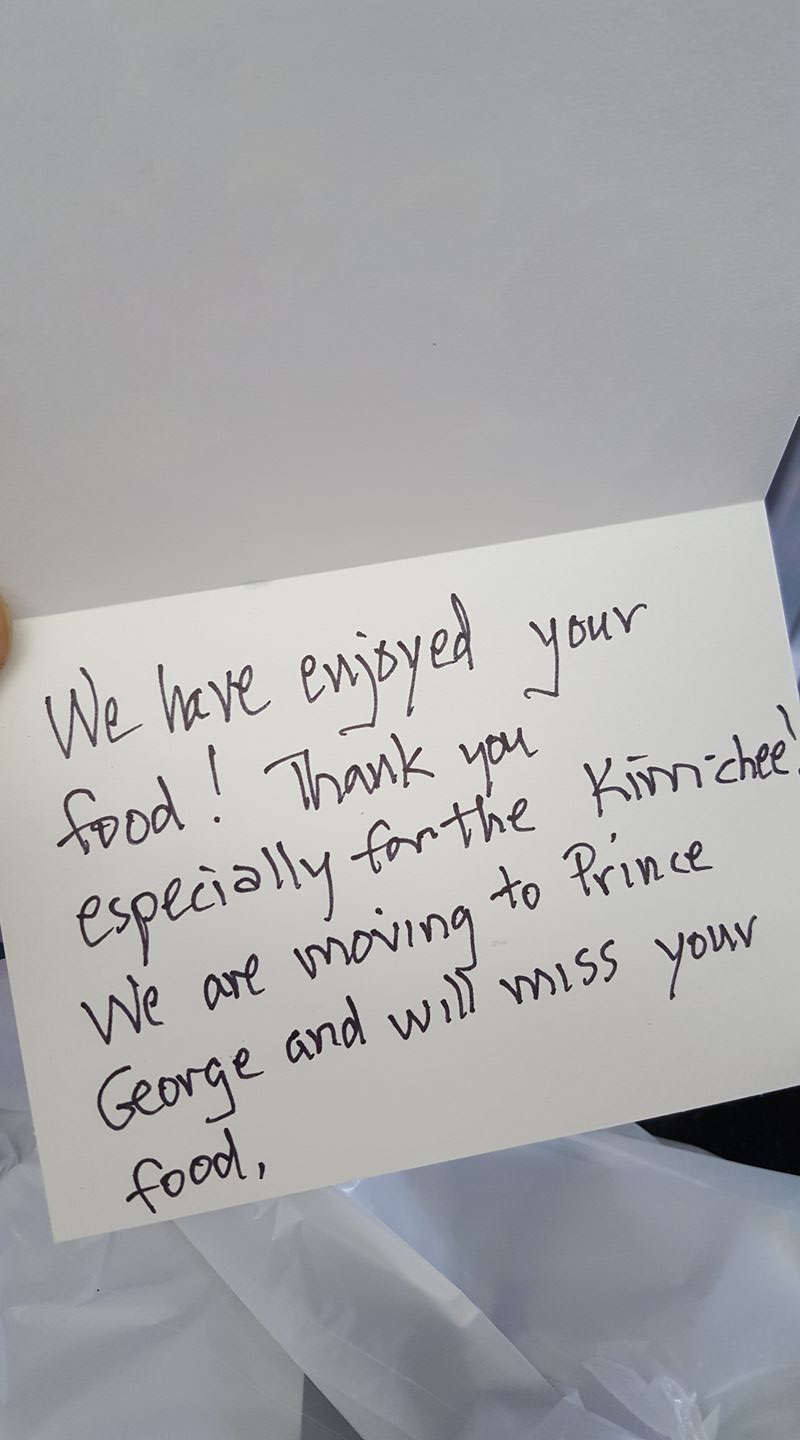 We have enjoyed your
food! Thank you
especially for the Kim-chee!
We are moving to Prince
George and will miss your
food,